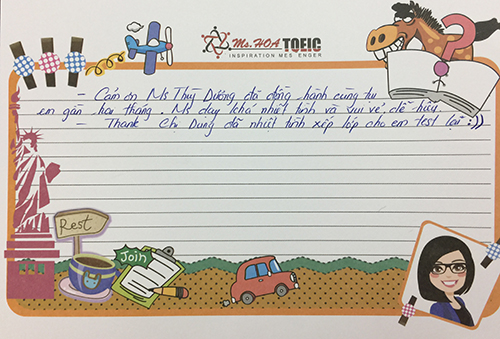 Ms. HOA TOEIC
INSPIRATION MESSENGER
- Cảm ơn Ms Thùy Dương đã đồng hành cùng tụi
em gần hai tháng. Ms dạy khá nhiệt tình và vui vẻ, dễ hiểu.
- Thank Chị Dung đã nhiệt tình xếp lớp cho em test lại :))
Rest
Join